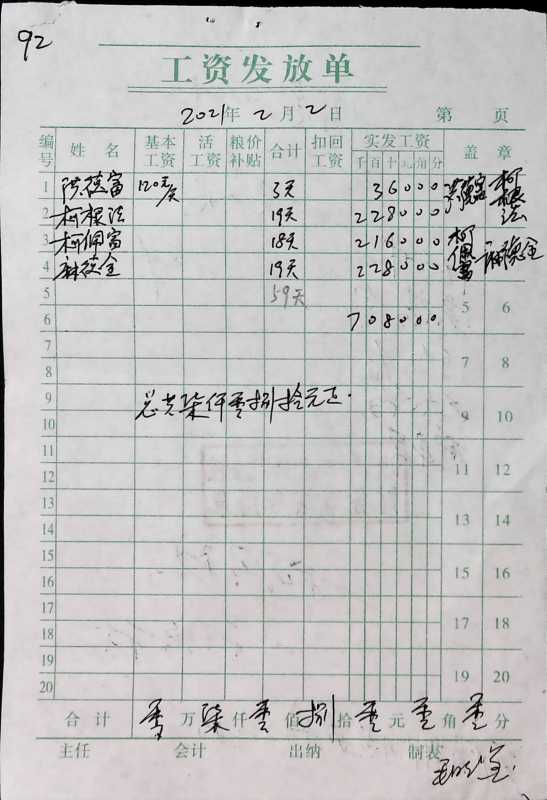 92
工资发放单
2021年 2月 2日 第 页
编号 姓名 基本工资 活工资 粮价补贴 合计 扣回工资 实发工资 千百十元角分 盖章
1 洪德富 120元/天 3天 36000
2 柯根法 19天 228000 柯根法
3 柯佩富 18天 216000 柯佩富
4 麻德全 19天 228000 麻德全
5 59天 5 6
6 708000
7 7 8
8
9 总共柒仟零捌拾元正. 9 10
10
11 11 12
12
13 13 14
14
15 15 16
16
17 17 18
18
19 19 20
20
合计 零万柒仟零佰捌拾零元零角零分
主任 会计 出纳 制表